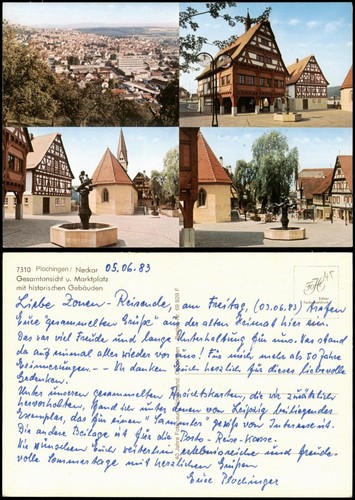 7310 Plochingen/Neckar
Gesamtansicht u. Marktplatz
mit historischen Gebäuden
05.06.83
Liebe Zonen-Reisende, am Freitag, (03.06.83) trafen
Eure "gesammelten Grüße" aus der alten Heimat hier ein.
Das war viel Freude und lange Unterhaltung für uns. Das stand
da auf einmal alles wieder vor uns! Für mich mehr als 50 Jahre
Erinnerungen. -- Wir danken Euch herzlich für dieses liebevolle
Gedenken.
Unter unseren gesammelten Ansichtskarten, die wir zusätzlich
hervorholten, fand ich unter denen von Leipzig beiliegendes
Exemplar, das für einen "Sammler" gewiß von Interesse ist.
Die andere Beilage ist für die Porto-Reise-Kasse.
Wir wünschen Euch weiterhin erlebnisreiche und freude-
volle Sommertage mit herzlichen Grüßen
Eure Plochinger